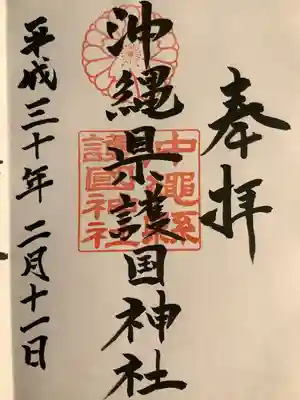 奉拝
沖縄県護国神社
沖縄縣
護國神社
平成三十年二月十一日